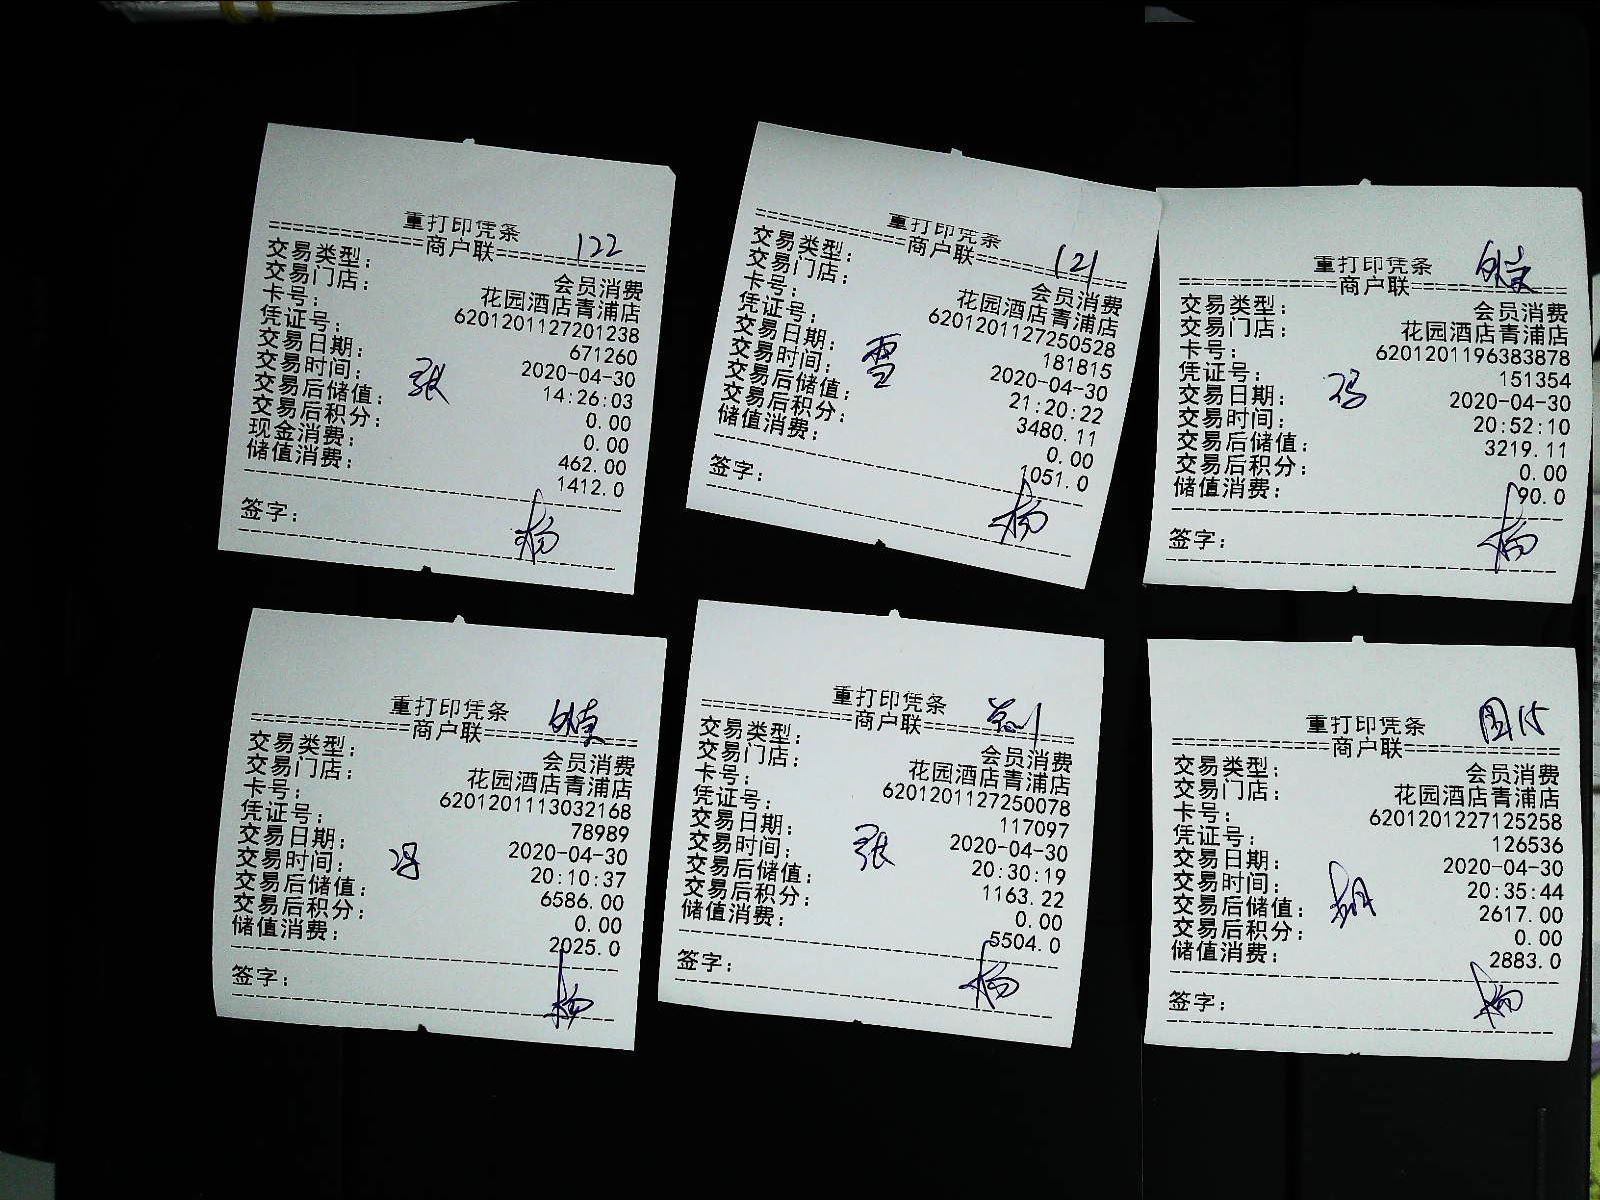 重打印凭条
122
商户联
交易类型: 会员消费
交易门店: 花园酒店青浦店
卡号: 6201201127201238
凭证号: 671260
交易日期: 2020-04-30
交易时间: 14:26:03
张
交易后储值: 0.00
交易后积分: 0.00
现金消费: 462.00
储值消费: 1412.0
签字: 杨
重打印凭条
121
商户联
交易类型: 会员消费
交易门店: 花园酒店青浦店
卡号: 6201201127250528
凭证号: 181815
交易日期: 2020-04-30
交易时间: 21:20:22
雪
交易后储值: 3480.11
交易后积分: 0.00
储值消费: 1051.0
签字: 杨
重打印凭条
商户联
交易类型: 会员消费
交易门店: 花园酒店青浦店
卡号: 6201201196383878
凭证号: 151354
交易日期: 2020-04-30
冯
交易时间: 20:52:10
交易后储值: 3219.11
交易后积分: 0.00
储值消费: 90.0
签字: 杨
重打印凭条
商户联
交易类型: 会员消费
交易门店: 花园酒店青浦店
卡号: 6201201113032168
凭证号: 78989
交易日期: 2020-04-30
交易时间: 20:10:37
冯
交易后储值: 6586.00
交易后积分: 0.00
储值消费: 2025.0
签字: 杨
重打印凭条
商户联
交易类型: 会员消费
交易门店: 花园酒店青浦店
卡号: 6201201127250078
凭证号: 117097
交易日期: 2020-04-30
交易时间: 20:30:19
张
交易后储值: 1163.22
交易后积分: 0.00
储值消费: 5504.0
签字: 杨
重打印凭条
图15
商户联
交易类型: 会员消费
交易门店: 花园酒店青浦店
卡号: 6201201227125258
凭证号: 126536
交易日期: 2020-04-30
交易时间: 20:35:44
胡
交易后储值: 2617.00
交易后积分: 0.00
储值消费: 2883.0
签字: 杨